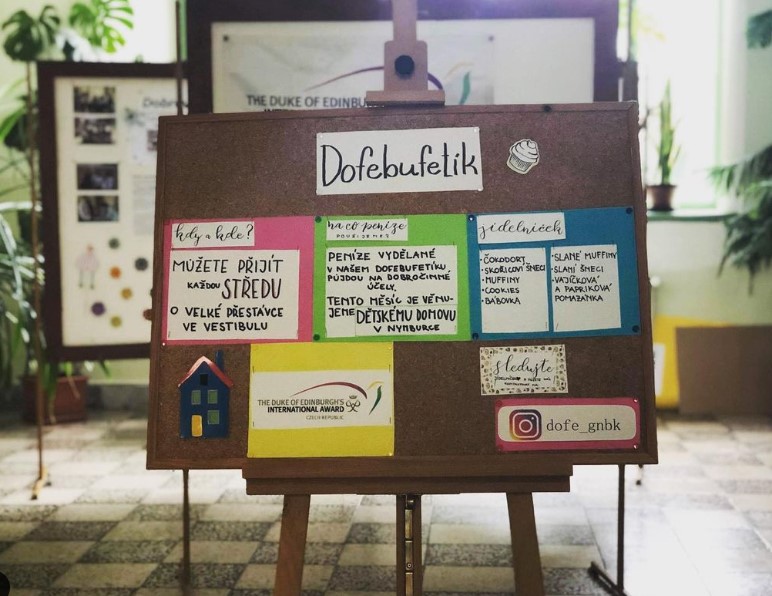 THE DUKE OF EDINBU
Dofebufetik
kdy a kde?
MŮŽETE PŘIJÍT
KAŽDOU STŘEDU
O VELKÉ PŘESTÁVCE
VE VESTIBULU
na co peníze
POUŽIJEME?
PENÍZE VYDĚLANÉ
V NAŠEM DOFEBUFETÍKU
PŮJDOU NA DOBROČINNÉ
ÚČELY.
TENTO MĚSÍC JE VĚNU-
JEME DĚTSKÉMU DOMOVU
V NYMBURCE
jídelníček
• ČOKODORT
• SKOŘICOVÍ ŠNECI
• MUFFINY
• COOKIES
• BÁBOVKA
• SLANÉ MUFFINY
• SLANÍ ŠNECI
• VAJÍČKOVÁ
A PAPRIKOVÁ
POMAZÁNKA
THE DUKE OF EDINBURGH'S
INTERNATIONAL AWARD
CZECH REPUBLIC
sledujte
dofe_gnbk